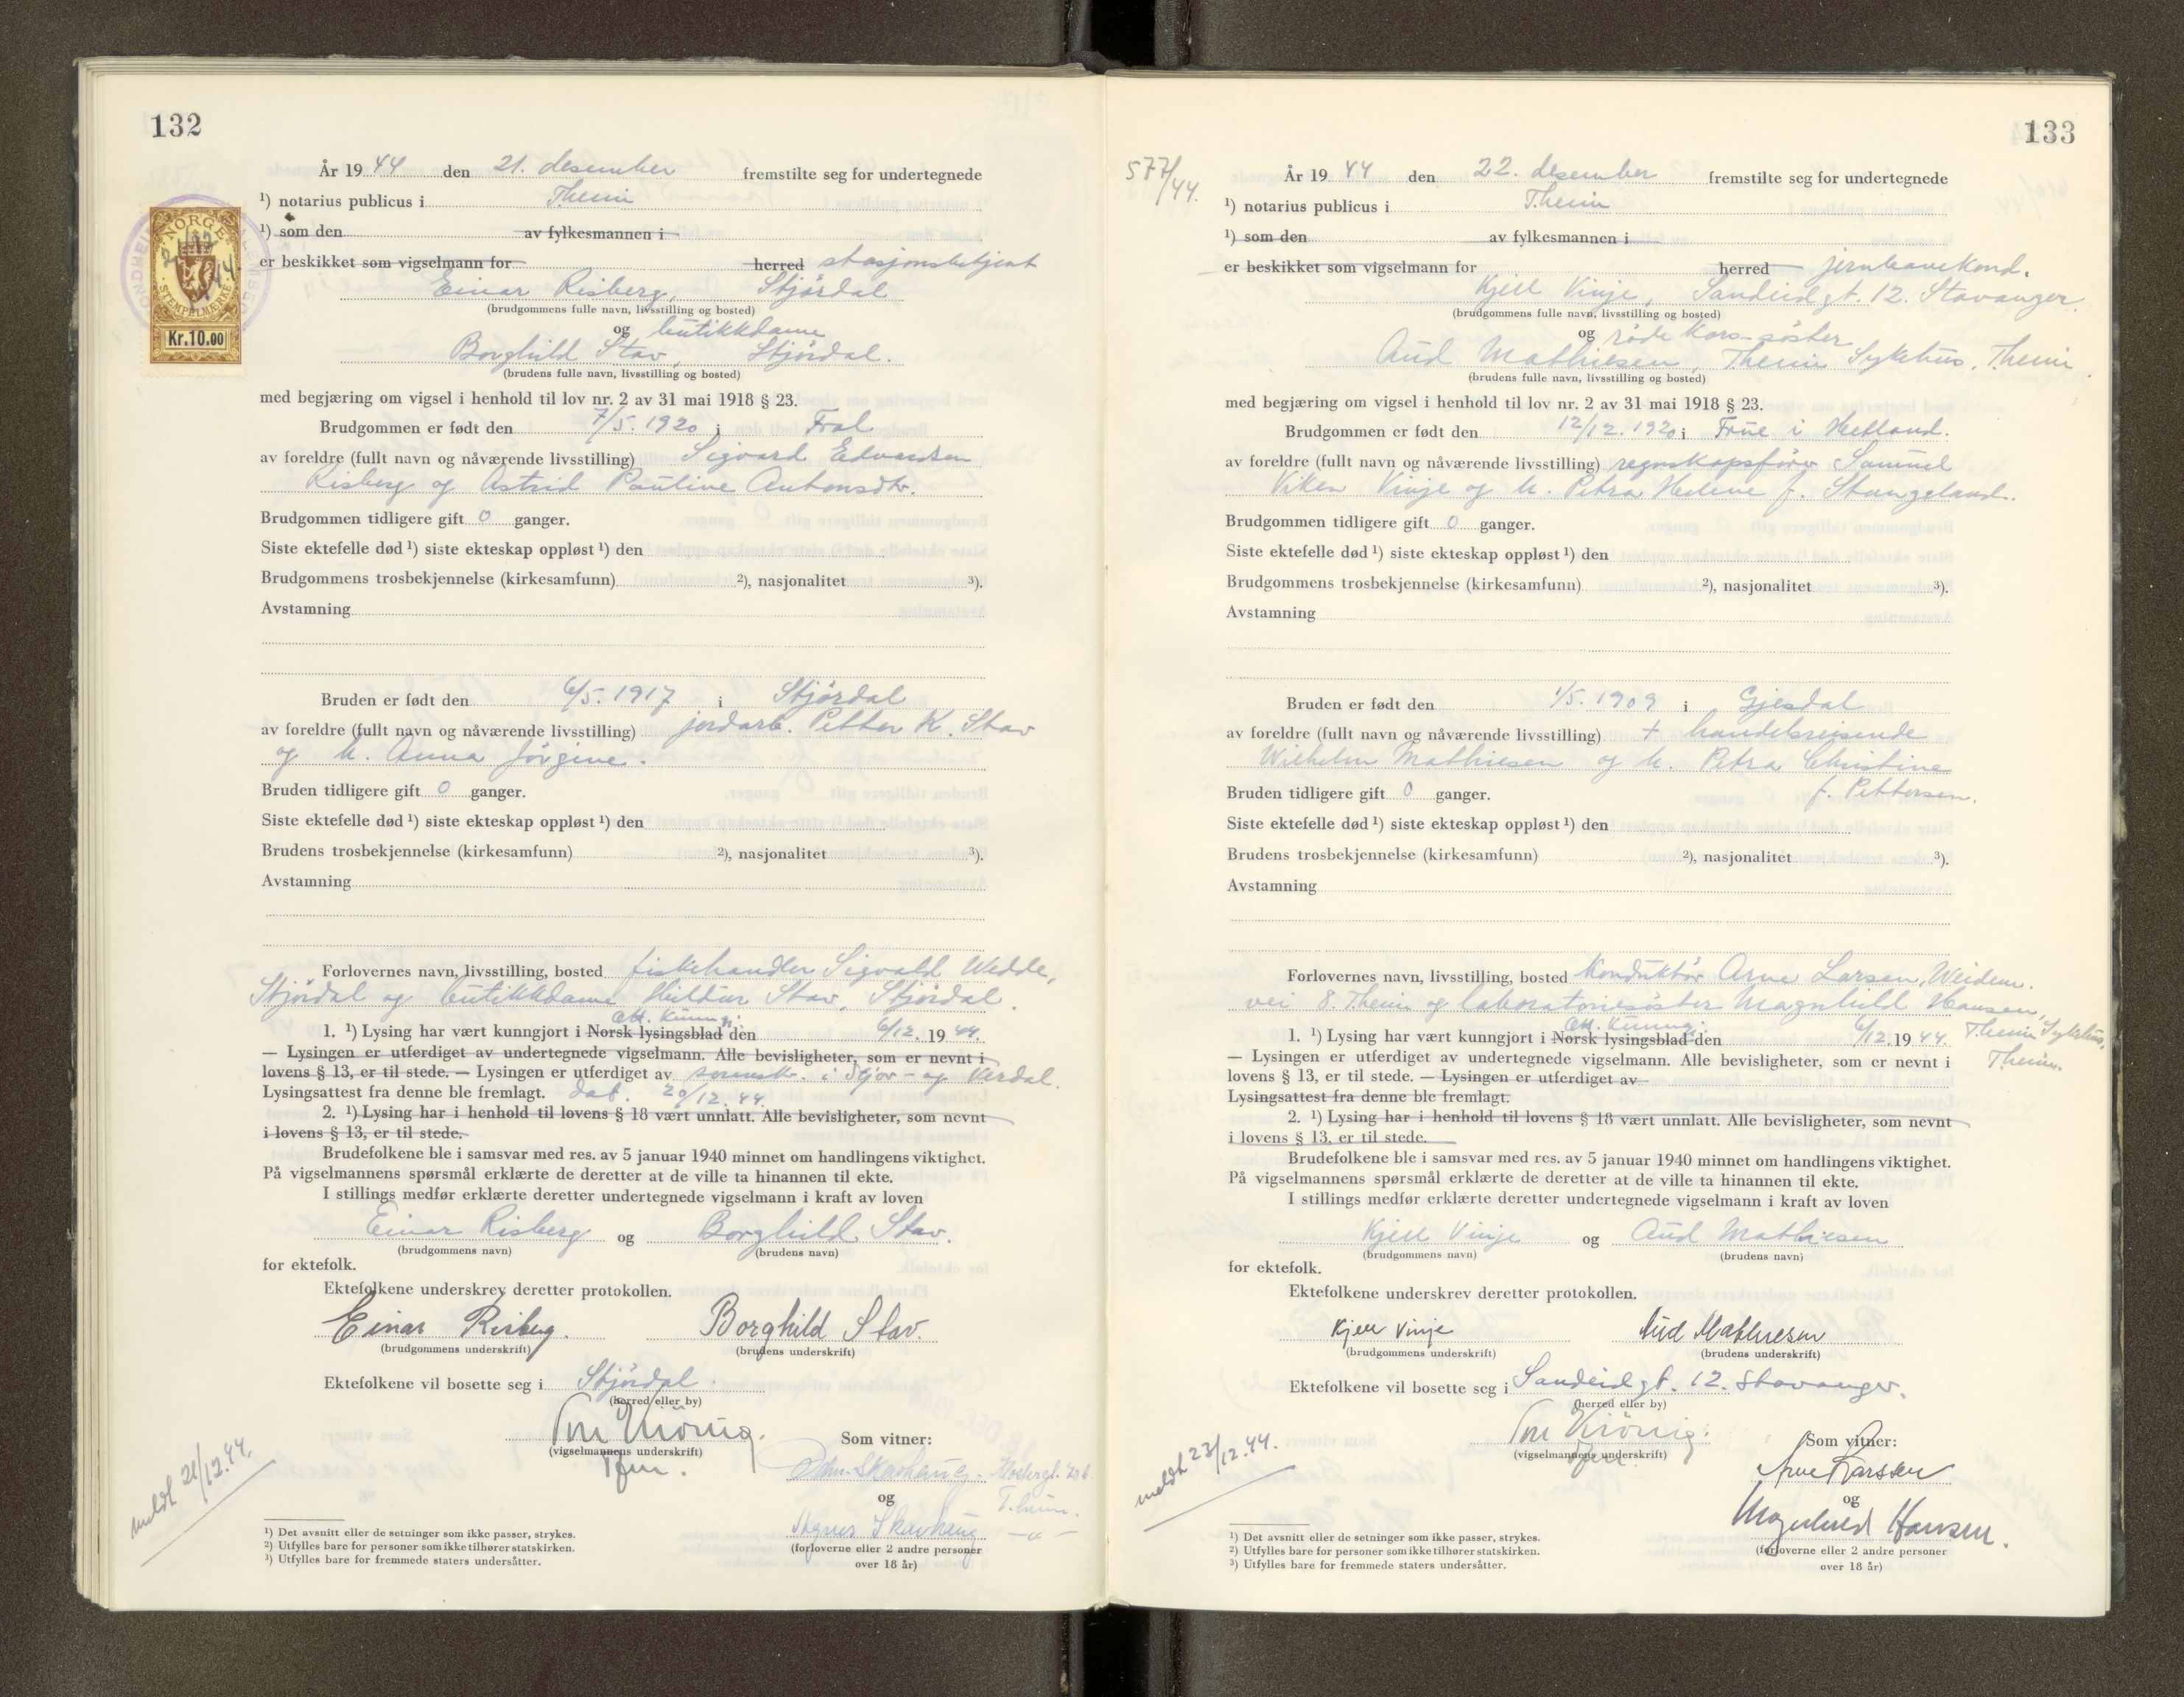 132
År 1944 den 21. desember fremstilte seg for undertegnede
¹) notarius publicus i Theim
¹) som den av fylkesmannen i
er beskikket som vigselmann for herred stasjonsbetjent
Einar Risberg, Stjørdal
(brudgommens fulle navn, livsstilling og bosted)
og butikkdame
Borghild Stav, Stjørdal.
(brudens fulle navn, livsstilling og bosted)
NORGE
STEMPELMERKE
Kr.10.00
21/12 44.
med begjæring om vigsel i henhold til lov nr. 2 av 31 mai 1918 § 23.
Brudgommen er født den 7/5. 1920 i Frol
av foreldre (fullt navn og nåværende livsstilling) Sigvard Edvardsen
Risberg og Astrid Pauline Antonsdtr.
Brudgommen tidligere gift 0 ganger.
Siste ektefelle død ¹) siste ekteskap oppløst ¹) den
Brudgommens trosbekjennelse (kirkesamfunn) ²), nasjonalitet ³).
Avstamning
Bruden er født den 6/5. 1917 i Stjørdal
av foreldre (fullt navn og nåværende livsstilling) jordarb. Petter K. Stav
og h. Anna Jørgine.
Bruden tidligere gift 0 ganger.
Siste ektefelle død ¹) siste ekteskap oppløst ¹) den
Brudens trosbekjennelse (kirkesamfunn) ²), nasjonalitet ³).
Avstamning
Forlovernes navn, livsstilling, bosted fiskehandler Sigvald Wedde,
Stjørdal og butikkdame Hildur Stav, Stjørdal.
off. kunng.
1. ¹) Lysing har vært kunngjort i Norsk lysingsblad den 6/12. 1944.
— Lysingen er utferdiget av undertegnede vigselmann. Alle bevisligheter, som er nevnt i
lovens § 13, er til stede. — Lysingen er utferdiget av sorensk. i Stjør- og Verdal.
Lysingsattest fra denne ble fremlagt. dat. 20/12. 44.
2. ¹) Lysing har i henhold til lovens § 18 vært unnlatt. Alle bevisligheter, som nevnt
i lovens § 13, er til stede.
Brudefolkene ble i samsvar med res. av 5 januar 1940 minnet om handlingens viktighet.
På vigselmannens spørsmål erklærte de deretter at de ville ta hinannen til ekte.
I stillings medfør erklærte deretter undertegnede vigselmann i kraft av loven
Einar Risberg og Borghild Stav.
(brudgommens navn) (brudens navn)
for ektefolk.
Ektefolkene underskrev deretter protokollen.
Einar Risberg. Borghild Stav.
(brudgommens underskrift) (brudens underskrift)
Ektefolkene vil bosette seg i Stjørdal.
(herred eller by)
(vigselmannens underskrift)
Som vitner:
Skavhaug
og
Agnes Skavhaug
(forloverne eller 2 andre personer
over 18 år)
meldt 21/12.44.
¹) Det avsnitt eller de setninger som ikke passer, strykes.
²) Utfylles bare for personer som ikke tilhører statskirken.
³) Utfylles bare for fremmede staters undersåtter.
133
577/44.
År 1944 den 22. desember fremstilte seg for undertegnede
¹) notarius publicus i Theim
¹) som den av fylkesmannen i
er beskikket som vigselmann for herred jernbanekond.
Kjell Vinje, Sandeidgt. 12. Stavanger.
(brudgommens fulle navn, livsstilling og bosted)
og røde Kors-søster
Aud Mathiesen, Theim Sykehus, Theim.
(brudens fulle navn, livsstilling og bosted)
med begjæring om vigsel i henhold til lov nr. 2 av 31 mai 1918 § 23.
Brudgommen er født den 12/12. 1920 i Frue i Hetland.
av foreldre (fullt navn og nåværende livsstilling) regnskapsfører Samuel
Viken Vinje og h. Petra Helene f. Stangeland.
Brudgommen tidligere gift 0 ganger.
Siste ektefelle død ¹) siste ekteskap oppløst ¹) den
Brudgommens trosbekjennelse (kirkesamfunn) ²), nasjonalitet ³).
Avstamning
Bruden er født den 1/5. 1909 i Gjesdal
av foreldre (fullt navn og nåværende livsstilling) + handelsreisende
Wilhelm Mathiesen og h. Petra Christine
f. Pettersen.
Bruden tidligere gift 0 ganger.
Siste ektefelle død ¹) siste ekteskap oppløst ¹) den
Brudens trosbekjennelse (kirkesamfunn) ²), nasjonalitet ³).
Avstamning
Forlovernes navn, livsstilling, bosted konduktør Arne Larsen, Weidem.
vei 8. Theim og laboratoriesøster Magnhild Hansen,
Theim Sykehus,
Theim.
off. kunng.
1. ¹) Lysing har vært kunngjort i Norsk lysingsblad den 6/12. 1944.
— Lysingen er utferdiget av undertegnede vigselmann. Alle bevisligheter, som er nevnt i
lovens § 13, er til stede. — Lysingen er utferdiget av
Lysingsattest fra denne ble fremlagt.
2. ¹) Lysing har i henhold til lovens § 18 vært unnlatt. Alle bevisligheter, som nevnt
i lovens § 13, er til stede.
Brudefolkene ble i samsvar med res. av 5 januar 1940 minnet om handlingens viktighet.
På vigselmannens spørsmål erklærte de deretter at de ville ta hinannen til ekte.
I stillings medfør erklærte deretter undertegnede vigselmann i kraft av loven
Kjell Vinje og Aud Mathiesen
(brudgommens navn) (brudens navn)
for ektefolk.
Ektefolkene underskrev deretter protokollen.
Kjell Vinje Aud Mathiesen
(brudgommens underskrift) (brudens underskrift)
Ektefolkene vil bosette seg i Sandeidgt. 12. Stavanger.
(herred eller by)
(vigselmannens underskrift)
Som vitner:
Arne Larssen
og
Magnhild Hansen.
(forloverne eller 2 andre personer
over 18 år)
meldt 23/12.44.
¹) Det avsnitt eller de setninger som ikke passer, strykes.
²) Utfylles bare for personer som ikke tilhører statskirken.
³) Utfylles bare for fremmede staters undersåtter.